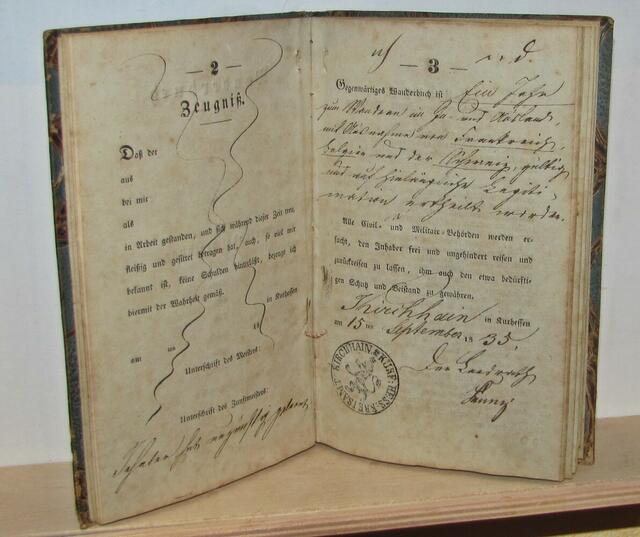 — 2 —
Zeugniß.
Daß der
aus
bei mir
als
in Arbeit gestanden, und sich während dieser Zeit treu,
fleißig und gesittet betragen hat, auch, so viel mir
bekannt ist, keine Schulden hinterläßt, bezeuge ich
hiermit der Wahrheit gemäß.
in Kurhessen
am ten 18
Unterschrift des Meisters:
Unterschrift des Zunftmeisters:
Inhaber hat
— 3 —
Gegenwärtiges Wanderbuch ist Ein Jahr
zum Wandern im In- und Ausland,
mit Ausnahme von Frankreich,
Belgien und der Schweiz, gültig
und auf hinlängliche Legiti-
mation ertheilt worden.
Alle Civil- und Militair-Behörden werden er-
sucht, den Inhaber frei und ungehindert reisen und
zurückreisen zu lassen, ihm auch den etwa bedürfti-
gen Schutz und Beistand zu gewähren.
Kirchhain in Kurhessen
am 15 ten September 18 35.
Der Landrath
KURF. HESS. KREISAMT KIRCHHAIN